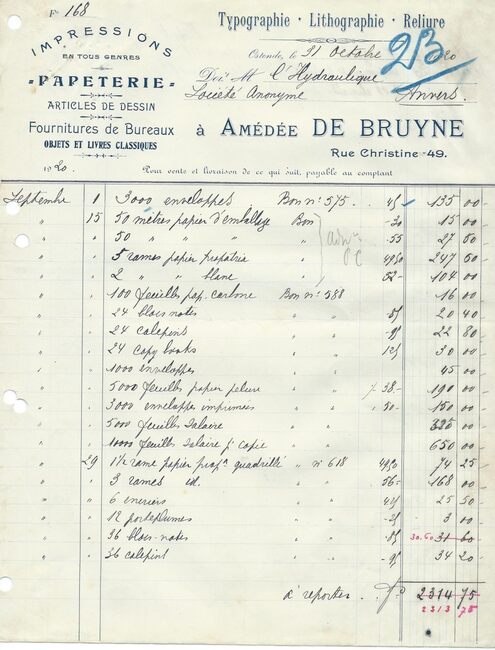 F° 168
IMPRESSIONS
EN TOUS GENRES
PAPETERIE
ARTICLES DE DESSIN
Fournitures de Bureaux
OBJETS ET LIVRES CLASSIQUES
Typographie · Lithographie · Reliure
Ostende, le 21 octobre 1920
213
Doit M l'Hydraulique
Société Anonyme Anvers.
à AMÉDÉE DE BRUYNE
Rue Christine 49.
1920. Pour vente et livraison de ce qui suit, payable au comptant
Septembre 1 3000 enveloppes Bon n° 575. 45 135 00
" 15 50 mètres papier d'emballage Bon -30 15 00
" " 50 " " " " -55 27 50
" " 5 rames papier " 49.50 247 50
" " 2 " " blanc " 52- 104 00
" " 100 feuilles pap. carbone Bon n° 588 16 00
" " 24 blocs-notes " " -85 20 40
" " 24 calepins " " -95 22 80
" " 24 copy books " " 1.25 30 00
" " 1000 enveloppes " " 45 00
" " 5000 feuilles papier pelure " " 38- 190 00
" " 3000 enveloppes imprimées " " 50- 150 00
" " 5000 feuilles salaire " " 325 00
" " 10000 feuilles salaire p. copie " " 650 00
" 29 1½ rame papier quadrillé " n° 618 49.50 74 25
" " 3 rames id. " " 56- 168 00
" " 6 encriers " " 4.25 25 50
" " 12 porteplumes " " -25 3 00
" " 36 blocs-notes " " -85 30.60 31 60
" " 36 calepins " " -95 34 20
à reporter. 2314 75
2313 75